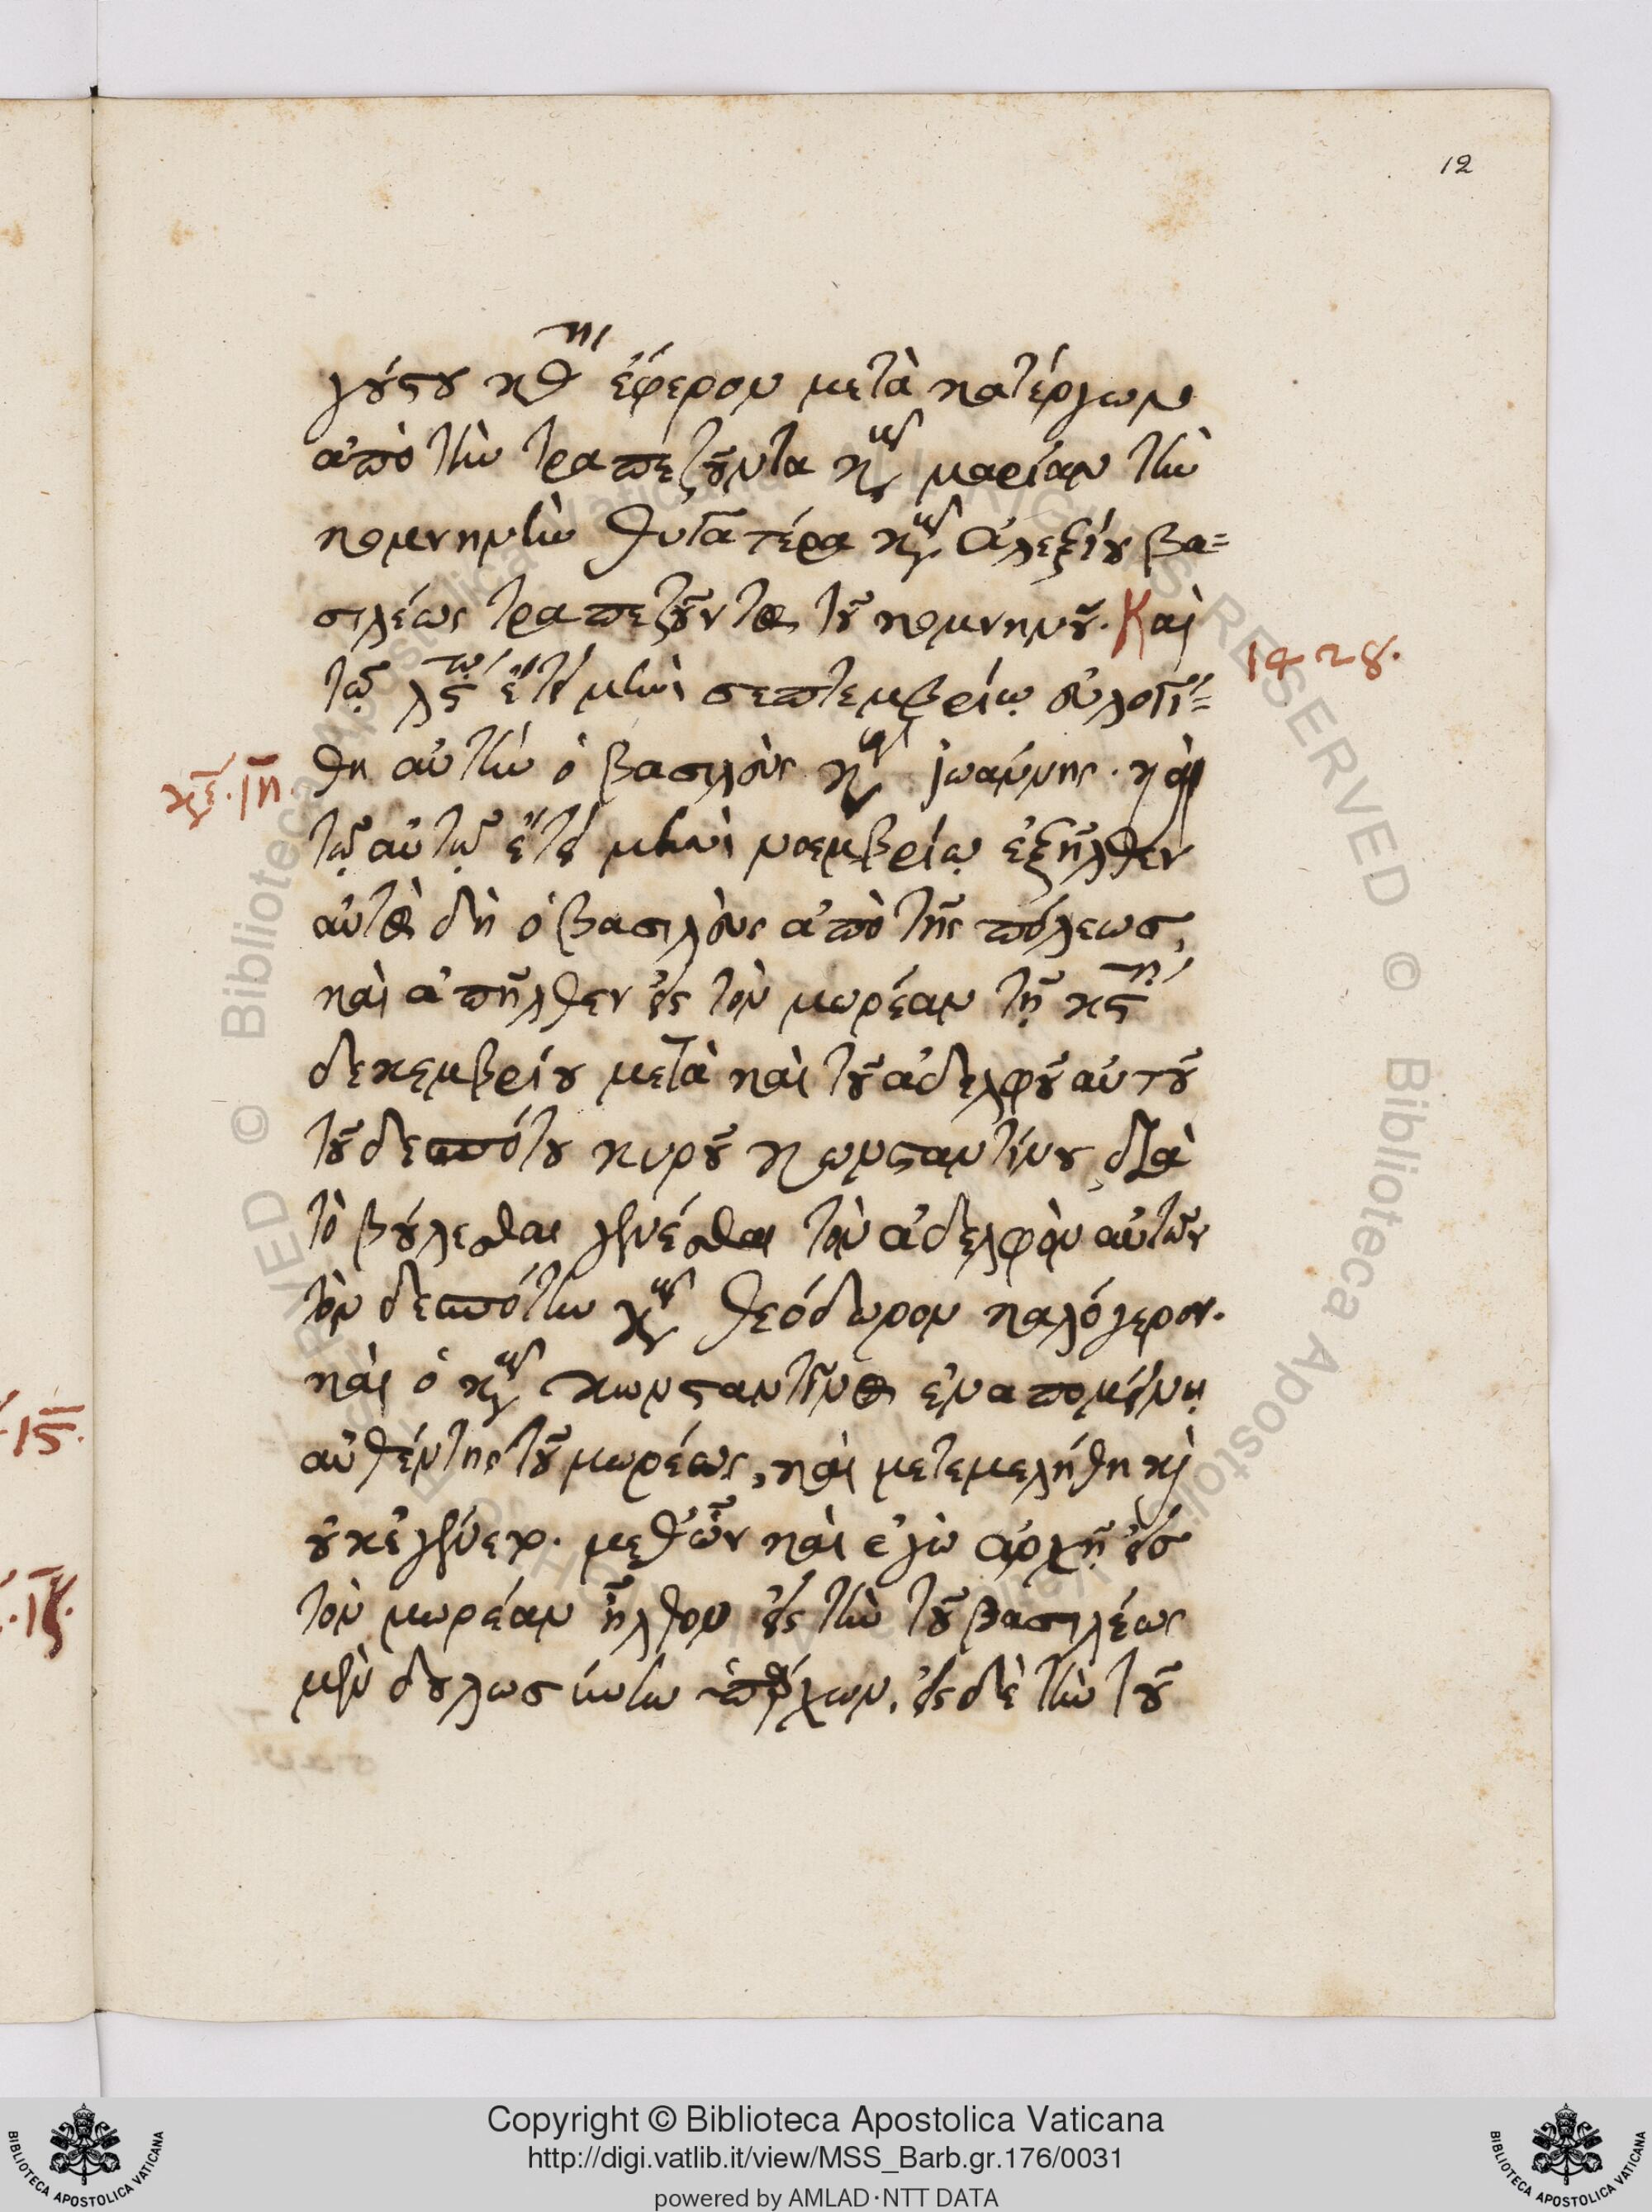 12
γούστου κθ ην ἐφερον μετὰ κατέργων
ἀπὸ τὴν τραπεζοῦντα κυρ μαρίαν τὴν
κομνηνὴν θυγατέρα κυρ ἀλεξίου βα=
σιλέως τραπεζοῦντος τοῦ κομνηνοῦ. Καὶ
1428.
τῶ λς ω ἔτει μηνὶ σεπτεμβρίω εὐλογή=
θη αὐτὴν ὁ βασιλεὺς κυρ ἰωάννης. καὶ
κε. ιη.
τῶ αὐτῶ ἔτει μηνὶ νοεμβρίω ἐξῆλθεν
αὐτὸς δὴ ὁ βασιλεὺς ἀπὸ τῆς πόλεως,
καὶ ἀπῆλθεν εἰς τὸν μωρέαν τῆ κς η
δεκεμβρίου μετὰ καὶ τοῦ ἀδελφοῦ αὐτοῦ
τοῦ δεσπότου κυροῦ κωνσταντίνου, διὰ
τὸ βούλεσθαι γενέσθαι τὸν ἀδελφὸν αὐτῶν
τὸν δεσπότην κυρ θεόδωρον καλόγερον.
καὶ ὁ κυρ κωνσταντῖνος ἐναπομείνη
αὐθέντης τοῦ μωρέως, καὶ μετεμελήθη καὶ
οὐκ ἐγένετο. μεθ' ὧν καὶ ἐγὼ ἀρχῆ εἰς
τὸν μωρέαν ἦλθον εἰς τὴν τοῦ βασιλέως
μὲν δουλωσύνην ὑπάρχων, εἰς δὲ τὴν τοῦ
Copyright © Biblioteca Apostolica Vaticana
http://digi.vatlib.it/view/MSS_Barb.gr.176/0031
powered by AMLAD·NTT DATA